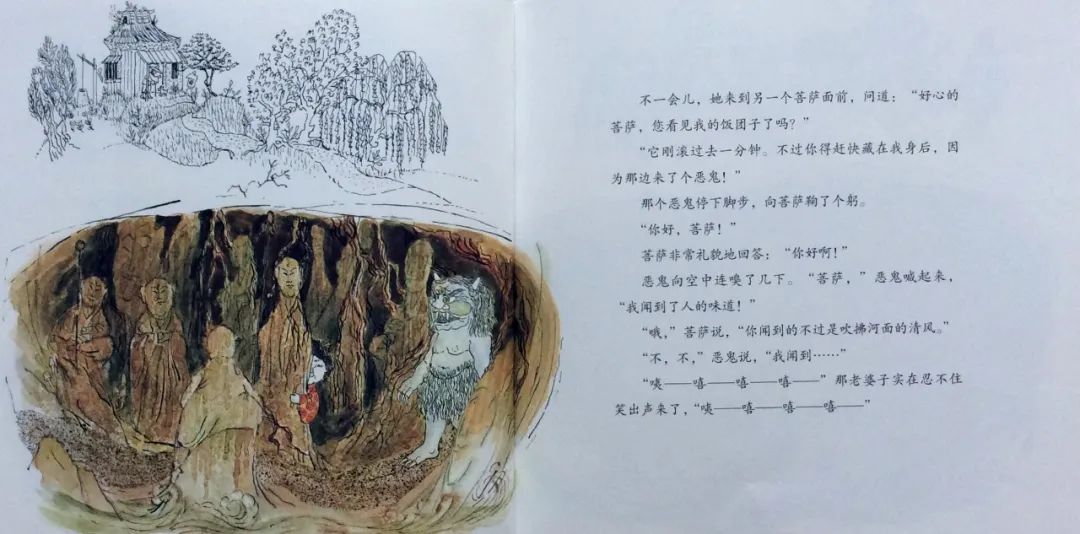 不一会儿，她来到另一个菩萨面前，问道：“好心的
菩萨，您看见我的饭团子了吗？”
“它刚滚过去一分钟。不过你得赶快藏在我身后，因
为那边来了个恶鬼！”
那个恶鬼停下脚步，向菩萨鞠了个躬。
“你好，菩萨！”
菩萨非常礼貌地回答：“你好啊！”
恶鬼向空中连嗅了几下。“菩萨，”恶鬼喊起来，
“我闻到了人的味道！”
“哦，”菩萨说，“你闻到的不过是吹拂河面的清风。”
“不，不，”恶鬼说，“我闻到……”
“咦——嘻——嘻——嘻——”那老婆子实在忍不住
笑出声来了，“咦——嘻——嘻——嘻——”